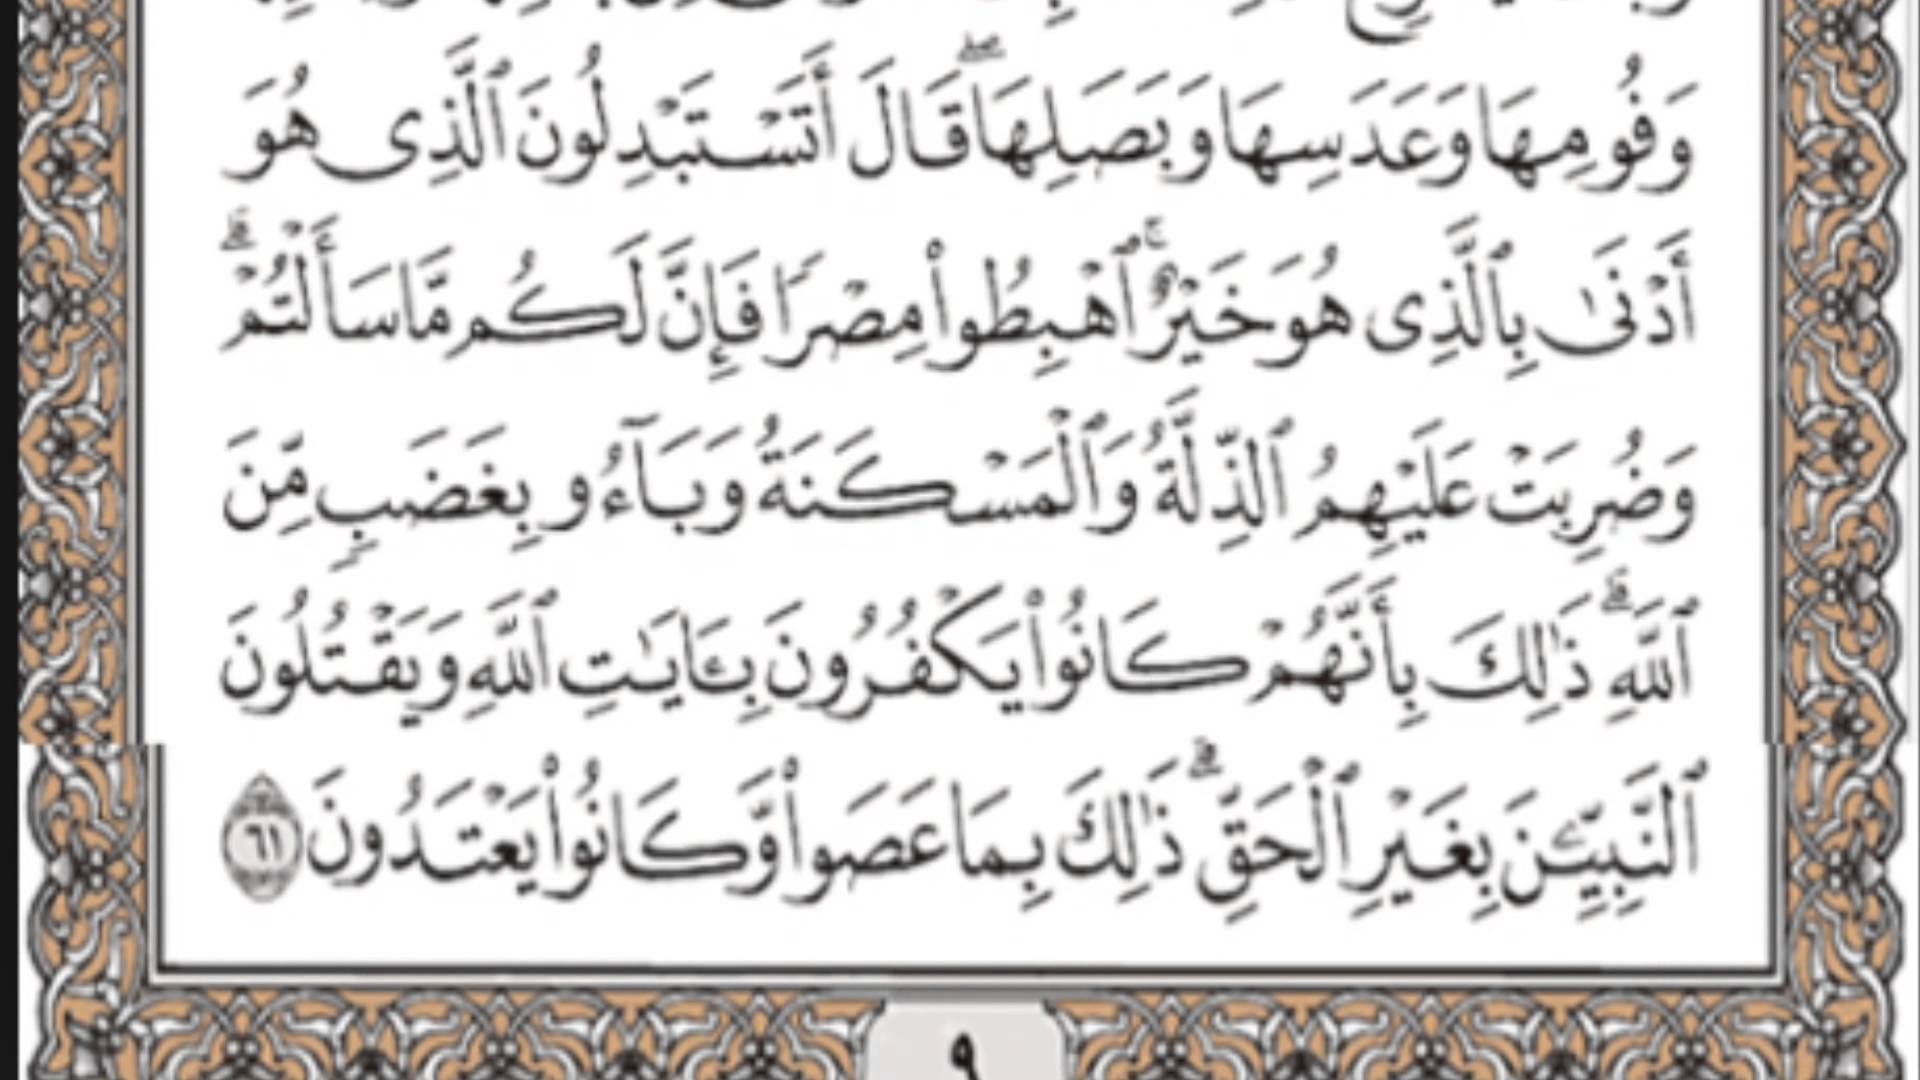 وَفُومِهَا وَعَدَسِهَا وَبَصَلِهَا ۖ قَالَ أَتَسْتَبْدِلُونَ ٱلَّذِى هُوَ
أَدْنَىٰ بِٱلَّذِى هُوَ خَيْرٌ ۚ ٱهْبِطُوا۟ مِصْرًا فَإِنَّ لَكُم مَّا سَأَلْتُمْ ۗ
وَضُرِبَتْ عَلَيْهِمُ ٱلذِّلَّةُ وَٱلْمَسْكَنَةُ وَبَآءُو بِغَضَبٍ مِّنَ
ٱللَّهِ ۗ ذَٰلِكَ بِأَنَّهُمْ كَانُوا۟ يَكْفُرُونَ بِـَٔايَـٰتِ ٱللَّهِ وَيَقْتُلُونَ
ٱلنَّبِيِّـۧنَ بِغَيْرِ ٱلْحَقِّ ۗ ذَٰلِكَ بِمَا عَصَوا۟ وَّكَانُوا۟ يَعْتَدُونَ ٦١
٩